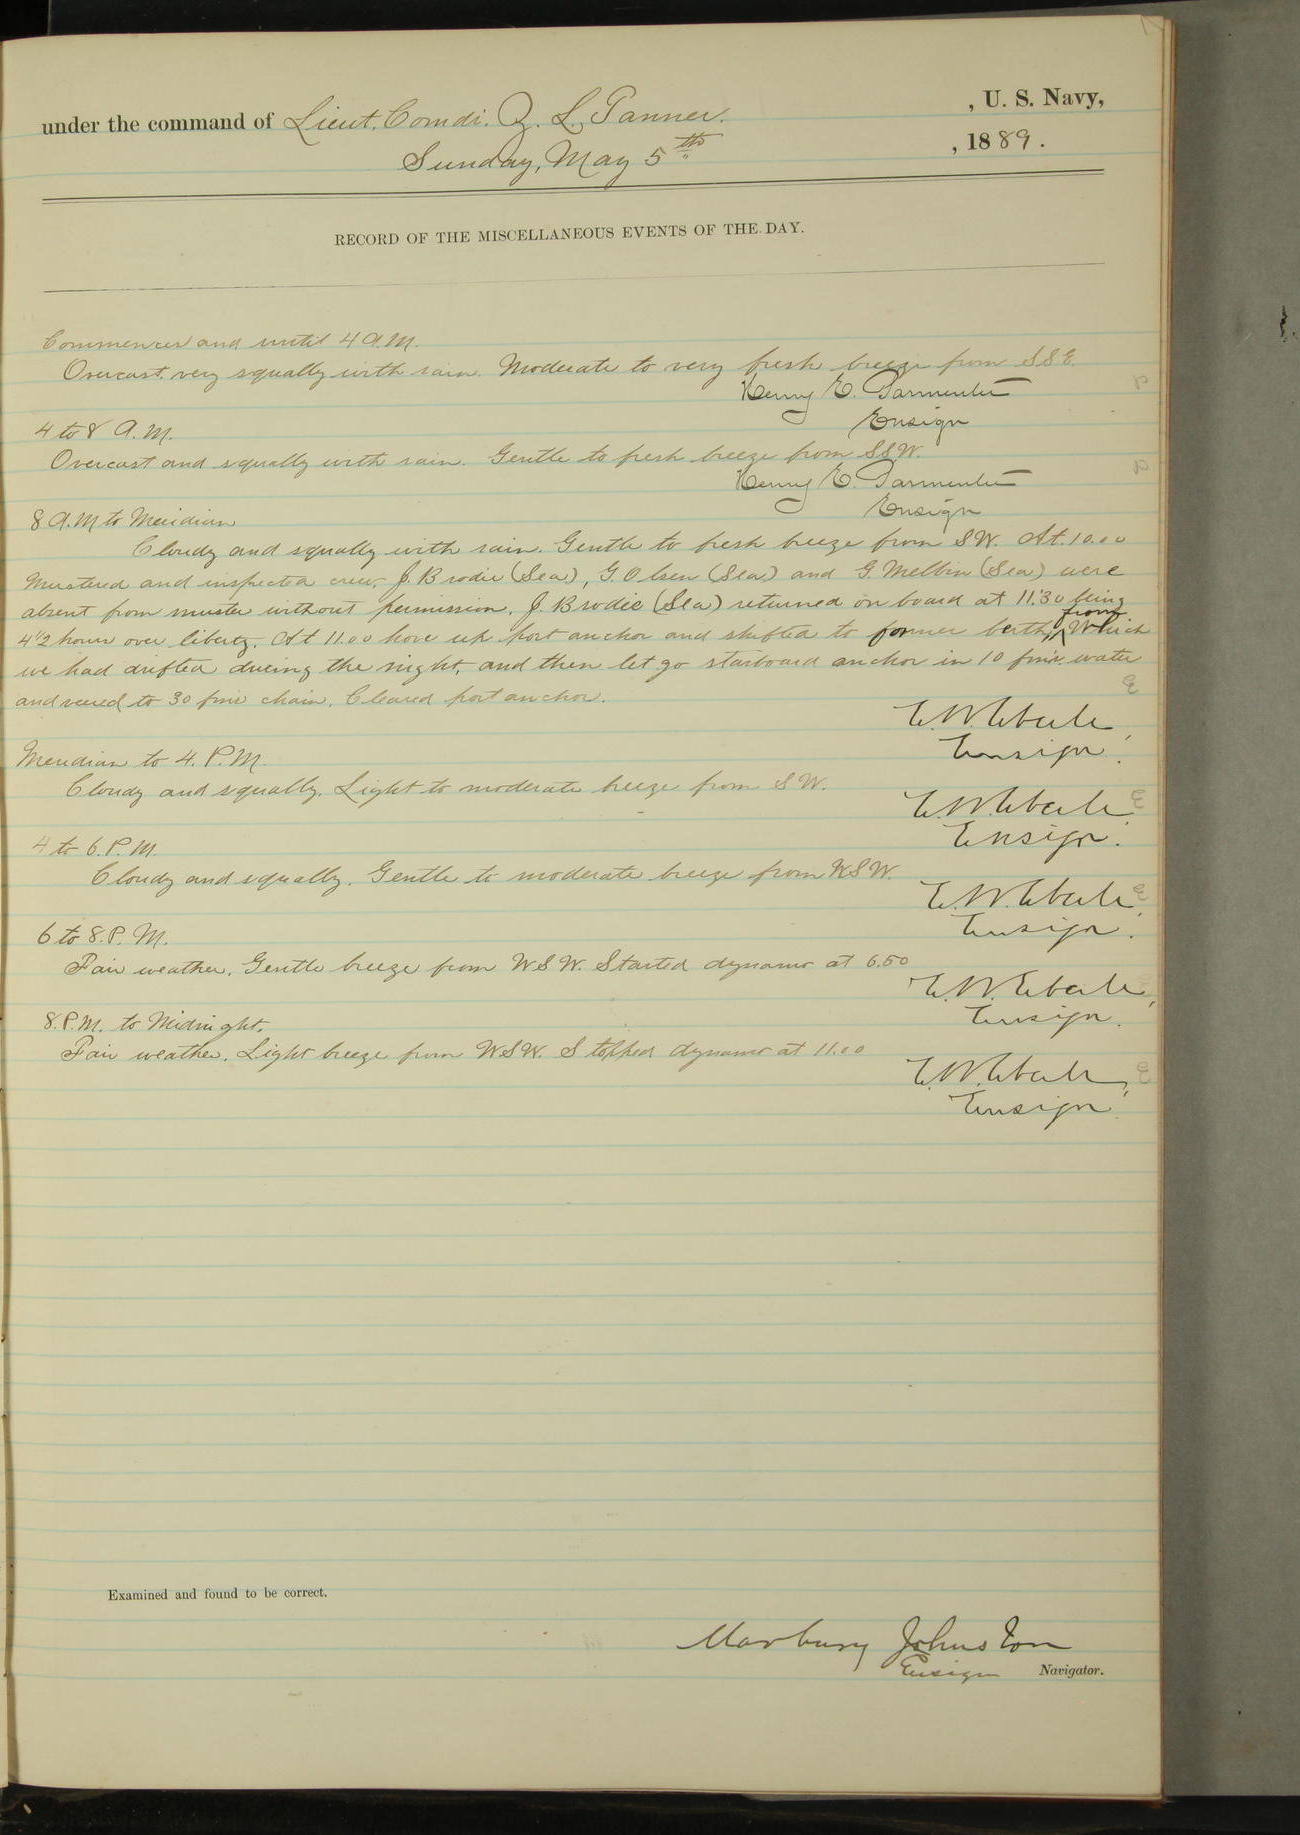 , U. S. Navy,
under the command of Lieut. Comdr. Z. L. Tanner.
, 1889.
Sunday, May 5th
RECORD OF THE MISCELLANEOUS EVENTS OF THE DAY.
Commences and until 4 A.M.
Overcast, very squally with rain. Moderate to very fresh breeze from SSE.
Henry E. Parmenter
Ensign
4 to 8 A.M.
Overcast and squally with rain. Gentle to fresh breeze from SSW.
Henry E. Parmenter
Ensign
8 A.M to Meridian
Cloudy and squally with rain. Gentle to fresh breeze from SW. At 10.00
mustered and inspected crew, J. Brodie (Sea), G. Olsen (Sea) and G. Melbin (Sea) were
absent from muster without permission. J. Brodie (Sea) returned on board at 11.30 being
4 1/2 hours over liberty. At 11.00 hove up port anchor and shifted to former berth, from which
we had drifted during the night, and then let go starboard anchor in 10 fms. water
and veered to 30 fms chain. Cleared port anchor.
E. W. Eberle,
Ensign.
Meridian to 4. P.M.
Cloudy and squally. Light to moderate breeze from SW.
E. W. Eberle,
Ensign.
4 to 6. P.M.
Cloudy and squally. Gentle to moderate breeze from WSW.
E. W. Eberle,
Ensign.
6 to 8. P. M.
Fair weather. Gentle breeze from WSW. Started dynamo at 6.50
E. W. Eberle,
Ensign.
8. P.M. to Midnight.
Fair weather. Light breeze from WSW. Stopped dynamo at 11.00
E. W. Eberle,
Ensign.
Examined and found to be correct.
Marbury Johnston
Ensign Navigator.